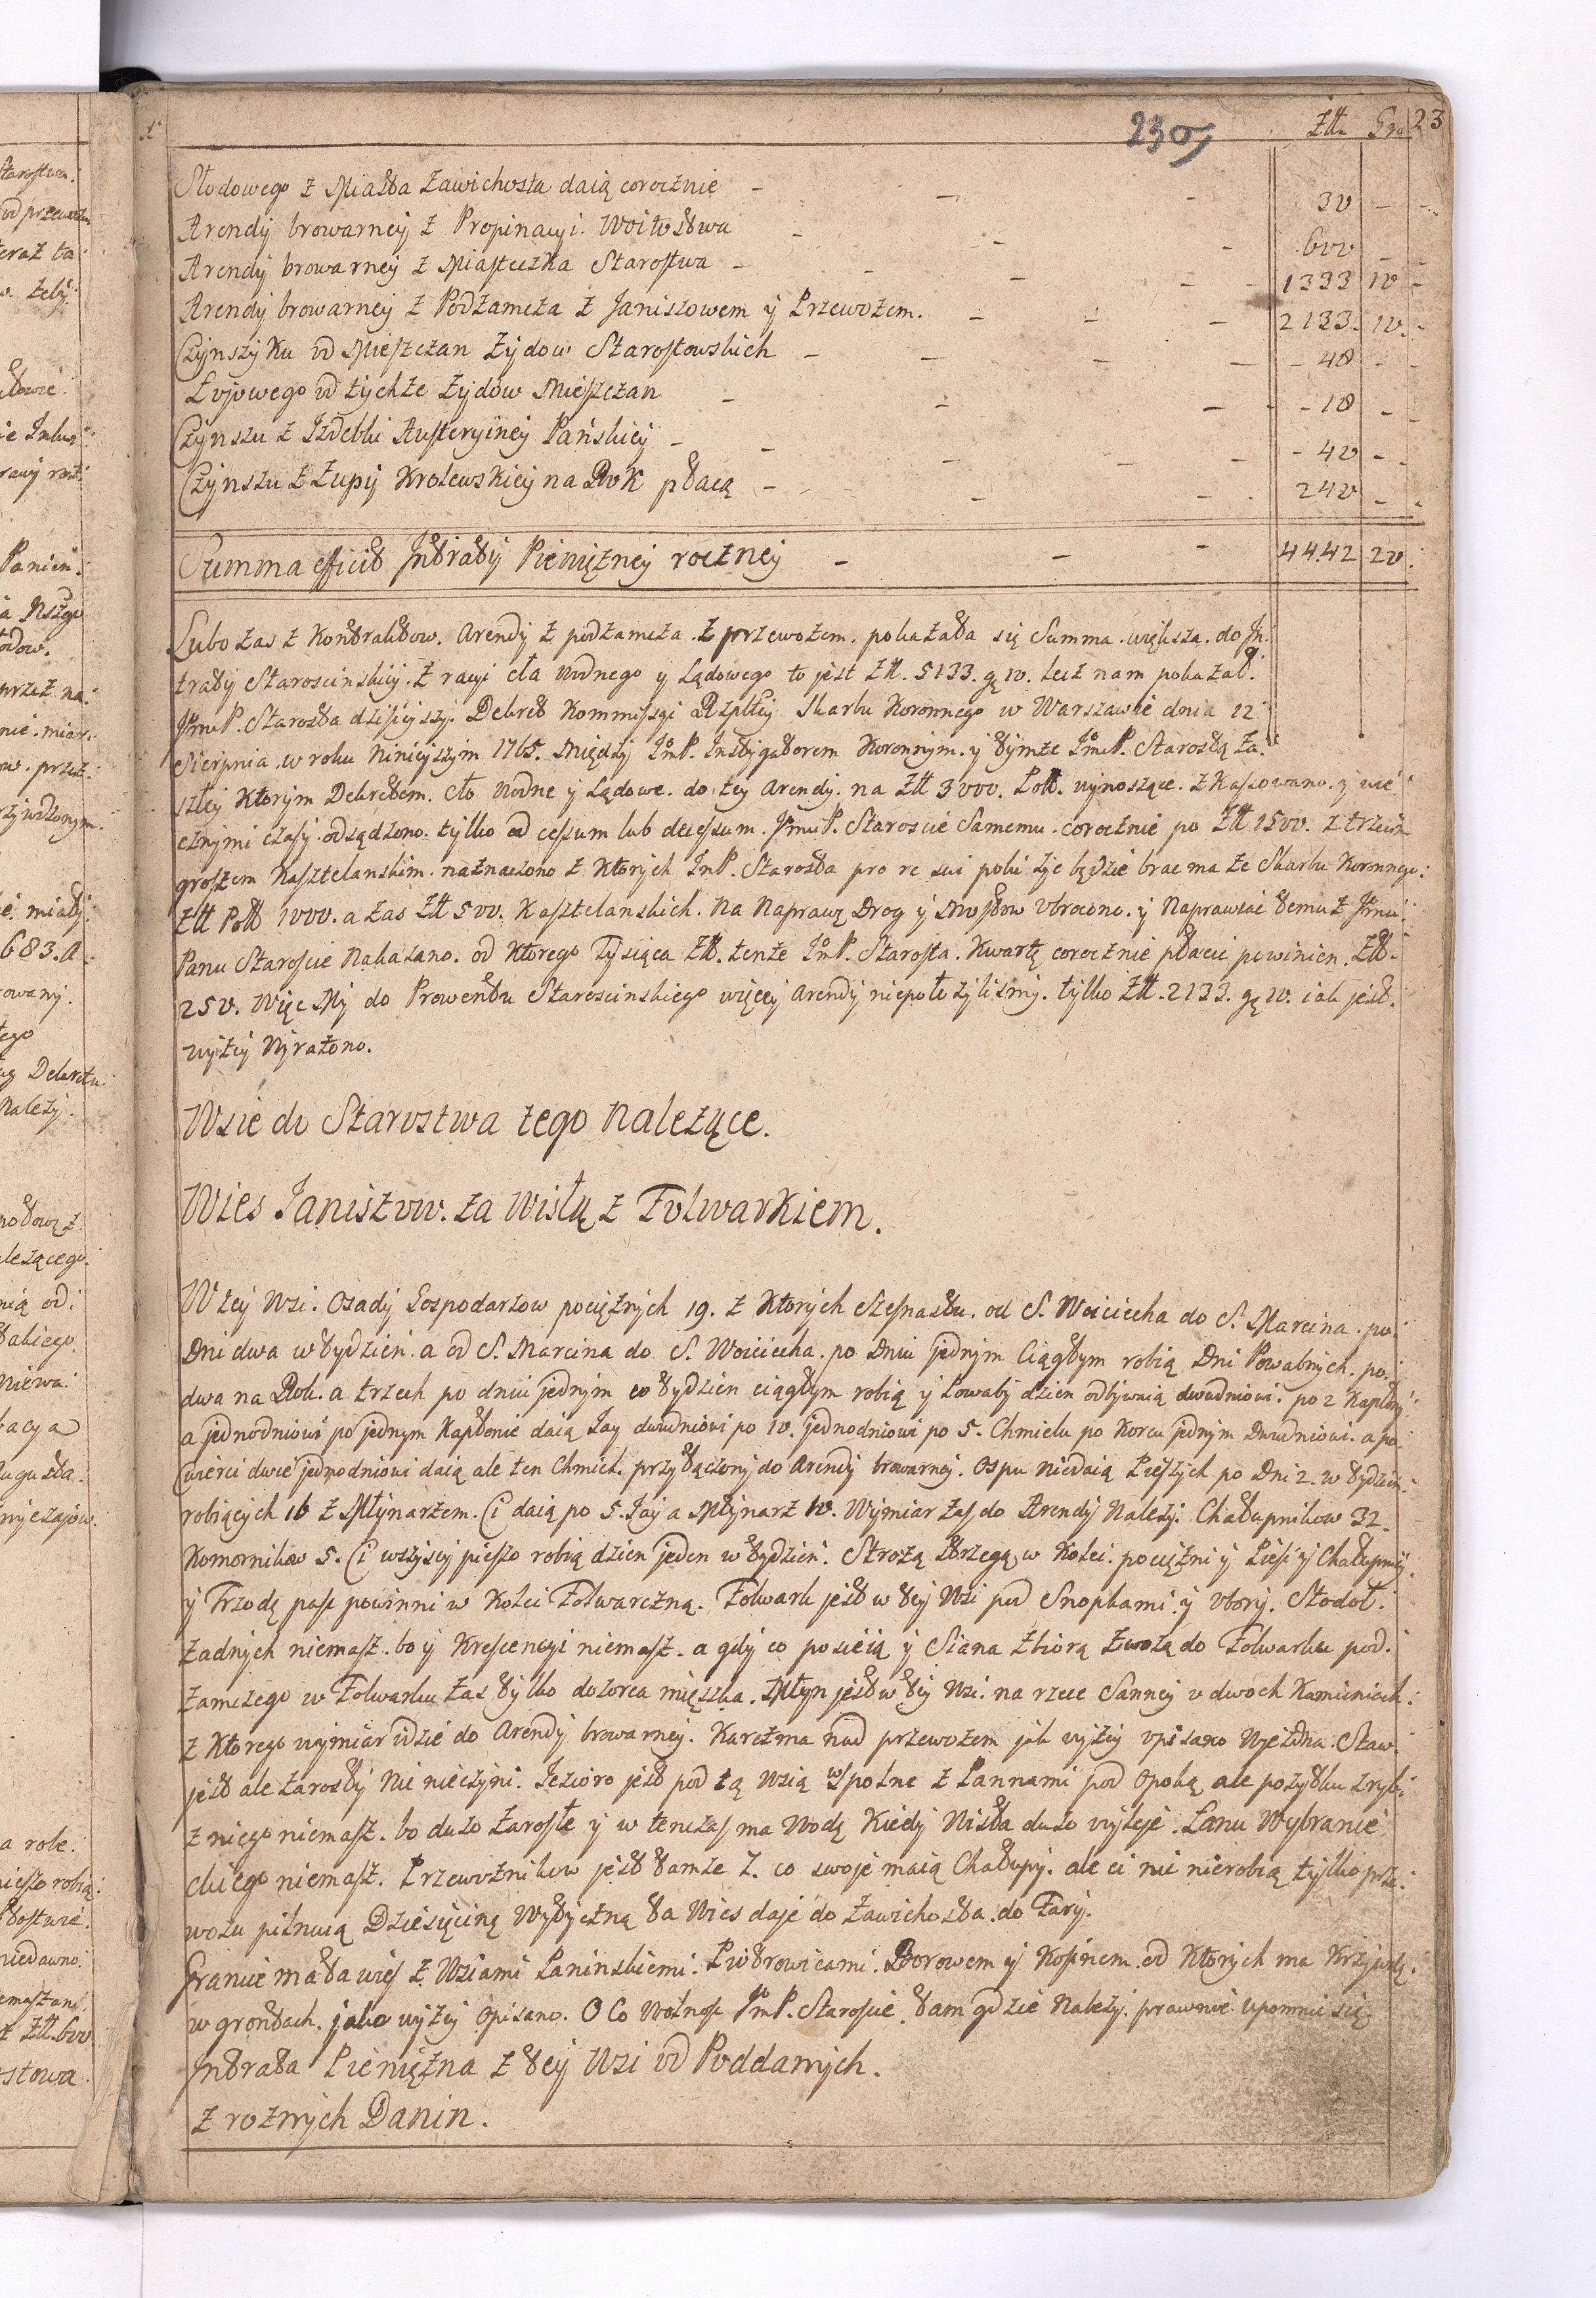 239
Złł. Gro. 23
Słodowego z Miasta Zawichosta daią corocznie - - - 30 - -
Arendy browarney z Propinacyi. Woitostwa - - - 600 -
Arendy browarney z Miasteczka Starostwa - - - - 1333 10 -
Arendy browarney z Podzamcza z Janiszowem y Przewozem. - - - 2133. 10. -
Czynszyku od Mieszczan Zydow Starostowskich - - - - 48 - -
Łojowego od tychze Zydow Mieszczan - - - - 18 - -
Czynszu z Izdebki Austeryiney Pańskiey - - - - - 40 - -
Czynszu z Zupy Krolewskiey na Rok płacą - - - - 240 - -
Summa efficit Intraty Pieniężney roczney - - - 4442 20.
Lubo zas z Kontraktow. Arendy z podzamcza. z przewozem. pokazała się Summa. większa. do In:
traty Staroscinskiey. z racyi cła Wodnego y Lądowego to jest Złł. 5133. gę 10. lecz nam pokazał.
JmcP. Starosta dzisieyszy. Dekret Kommissyi Rzpłtey Skarbu Koronnego w Warszawie dnia 12
Sierpnia w roku Ninieyszym 1765. Między JmP. Instygatorem Koronnym. y tymze JmcP. Starostą za:
szłey Ktorym Dekretem. cło Wodne y Lądowe. do tey Arendy. na Złł 3000. Poll. wynoszące. zKassowano. y wie
cznymi czasy. odsądzono. tylko ad cessum lub decessum. JmcP. Staroscie Samemu. corocznie po Złł 1500. z trzecim
groszem Kasztelanskim. naznaczono z Ktorych JmP. Starosta pro re sui poki zyc będzie brac ma ze Skarbu Koronnego:
Złł Poll 1000. a zas Złł 500. Kasztelanskich. Na Naprawę Drog y Mostow obrocono. y Naprawiać temuz Jmci
Panu Staroscie Nakazano. od Ktorego Tysiąca Złł. tenze JmP. Starosta. Kwartę corocznie płacic powinien. Złł.
250. Więc My do Prowentu Staroscinskiego więcey Arendy niepołozylismy. tylko Złł. 2133. gę 10. iak jest.
wyzey Wyrazono.
Wsie do Starostwa tego Nalezące.
Wies Janiszow. za Wisłą z Folwarkiem.
W tey Wsi. Osady Gospodarzow pociężnych 19. z Ktorych Szesnastu. od S. Woiciecha do S. Marcina. po:
Dni dwa w tydzien. a od S. Marcina do S. Woiciecha. po Dniu jednym Ciągłym robią Dni Powabnych. po.
dwa na Rok. a trzech po dniu jednym co tydzien ciągłym robią y Powaby dzien odbywaią dwudniowi. po 2 Kapłony
a jednodniowi po jednym Kapłonie daią Jay dwudniowi po 10. jednodniowi po 5. Chmielu po Korcu jednym Dwudniowi. a po.
Cwierci dwie jednodniowi daią ale ten Chmiel. przyłączony do Arendy browarney. Ospu Niedaią Pieszych po Dni 2. w tydzien.
robiących 16 z Młynarzem. Ci daią po 5. Jay a Młynarz 10. Wymiar zas do Arendy Nalezy. Chałupnikow 32.
Komornikow 5. Ci wszyscy pieszo robią dzien jeden w tydzien. Strozą strzegą w Kolei. pociężni y Piesi y Chałupnicy.
y Trzodę pase powinni w Kolei Folwarczną. Folwark jest w tey Wsi pod Snopkami. y obory. Stodoł.
zadnych niemasz. bo y Krescencyi niemasz. a gdy co posieią y Siana zbiorą zwozą do Folwarku pod.
zamczego w Folwarku zas tylko dozorca mięszka. Młyn jest w tey Wsi. na rzece Sanney o dwoch Kamieniach.
z Ktorego wymiar idzie do Arendy browarney. Karczma nad przewozem jak wyzey opisano Wjezdna. Staw.
jest ale zarosły Nic nieczyni. Jezioro jest pod tą Wsią wspolne z Pannami pod Opoką ale pozytku zryb:
z niego niemasz. bo duzo zarosłe y w tenczas ma Wodę Kiedy Wisła duzo wyleje. Łanu Wybranie
ckiego niemasz. Przewoznikow jest tamze 7. co swoje maią Chałupy. ale ci nic nierobią tylko prze:
wozu pilnuią Dziesięcinę Wytyczną ta Wies daje do Zawichosta. do Fary.
Granice ma ta wies z Wsiami Paninskiemi. Piotrowicami. Borowem y Kosinem. od Ktorych ma Krzywdę.
w grontach. jako wyzey Opisano. O Co Wolnosc JmP. Staroscie. tam gdzie Nalezy. prawnie upomnic się.
Intrata Pieniężna z tey Wsi od Poddanych.
z roznych Danin.